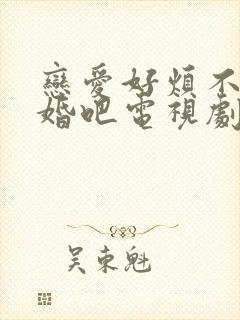 戀愛好煩不
婚吧電視劇
吴東魁